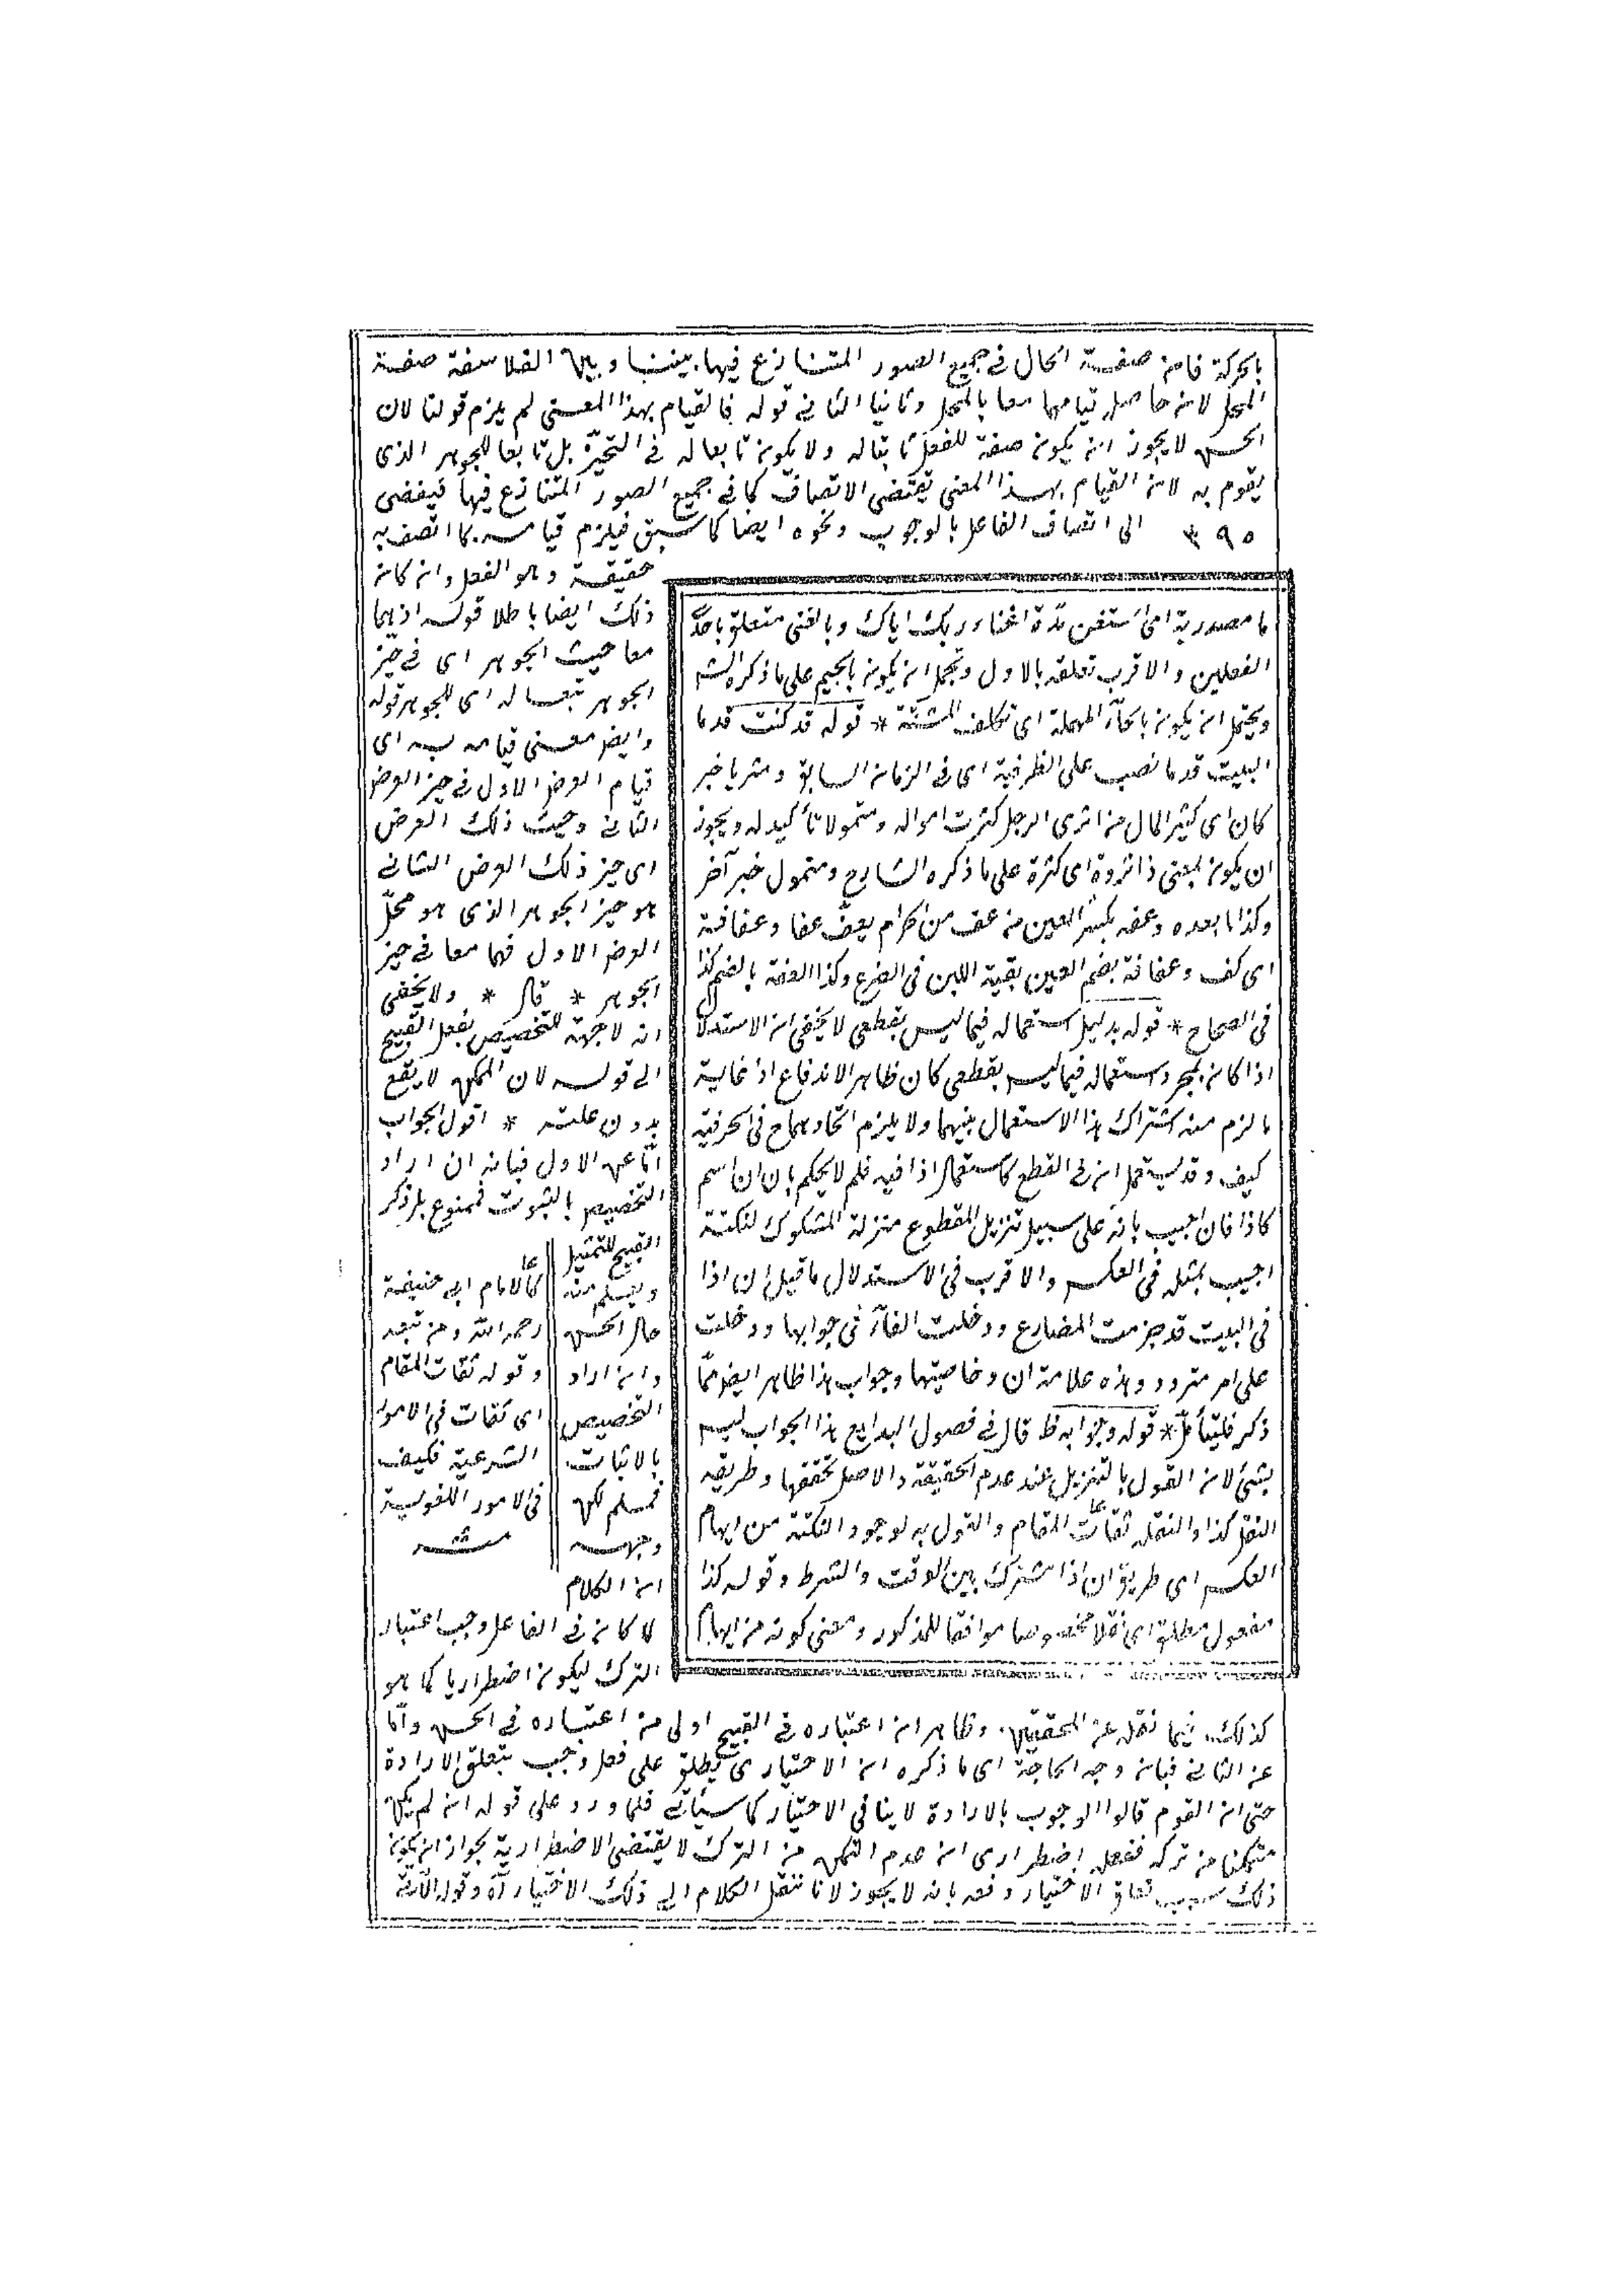 بالحركة فان صفة الحال في جميع الصور المتنازع فيها بيننا وبين الفلاسفة صفة
المحل لان حاصل قيامهما معا بالمحل وثانيا الثاني قوله فالقيام بهذا المعنى لم يلزم قولنا لان
الحسن لا يجوز ان يكون صفة للفعل ثابتا له ولا يكون تابعا له في التحيز بل تابعا للجوهر الذى
يقوم به لان القيام بهذا المعنى يقتضى الاتصاف كما في جميع الصور المتنازع فيها فيفضى
٣٩٥ الى اتصاف الفاعل بالوجوب ونحوه ايضا كما سبق فيلزم قيامه بما اتصف به
حقيقة وهو الفعل وان كان
ذلك ايضا باطلا قوله اذ هما
معا حيث الجوهر اى في حيز
الجوهر تبعا له اى للجوهر قوله
وايض معنى قيامه به اى
قيام العرض الاول في حيز العرض
الثاني وحيث ذلك العرض
اى حيز ذلك العرض الثاني
هو حيز الجوهر الذى هو محل
العرض الاول فهما معا في حيز
الجوهر * قال * ولا يخفى
انه لا جهة للتخصيص بفعل القبيح
الى قوله لان الممكن لا يقع
بدون علته * اقول الجواب
امّا عن الاول فبانه ان اراد
التخصيص بالثبوت فممنوع بل ذكر
القبيح للتمثيل
ويعلم منه
حال الحسن
وان اراد
التخصيص
بالاثبات
فمسلم لكن
وجهه
ان الكلام
لما كان في الفاعل وجب اعتبار
الترك ليكون اضطراريا كما هو
كذلك فيما نقل عن المحققين وظاهر ان اعتباره في القبيح اولى من اعتباره في الحسن وامّا
عن الثاني فبان وجه الحاجة اى ما ذكره ان الاختيارى يطلق على فعل وجب بتعلق الارادة
حتى ان القوم قالوا الوجوب بالارادة لا ينافى الاختيار كما سيأتي فلما ورد على قوله ان لم يكن
متمكنا من تركه ففعله اضطرارى ان عدم التمكن من الترك لا يقتضى الاضطرارية بجواز ان يكون
ذلك بسبب تعلق الاختيار دفعه بانه لا يجوز لانا ننقل الكلام الى ذلك الاختيار آه وقوله
ما مصدرية اى استغن مدّة اغناء ربك اياك وبالغنى متعلق باحد
الفعلين والاقرب تعلقه بالاول وتجمل ان يكون بالجيم على ما ذكره الش
ويحتمل ان يكون بالحاء المهملة اى تكلف المشقة * قوله قد كنت قدما
البيت قدما نصب على الظرفية اى في الزمان السابق ومثريا خبر
كان اى كثير المال من اثرى الرجل كثرت امواله ومتمولا تأكيد له ويجوز
ان يكون بمعنى ذا ثروة اى كثرة على ما ذكره الشارح ومتمول خبر آخر
وكذا ما بعده وعفه بكسر العين من عف من الحرام يعفّ عفا وعفافة
اى كف وعفافة بضم العين بقية اللبن في الضرع وكذا العفة بالضم كذا
في الصحاح * قوله بدليل استعماله فيما ليس بقطعى لا يخفى ان الاستدلال
اذا كان بمجرد استعماله فيما ليس بقطعى كان ظاهر الاندفاع اذ غاية
ما لزم منه اشتراك هذا الاستعمال بينهما ولا يلزم اتحادهما في الحرفية
كيف وقد يستعمل ان في القطع كاستعمال اذا فيه فلم لا يحكم بان ان اسم
كاذا فان اجيب بانه على سبيل تنزيل المقطوع منزلة المشكوك لنكتة
اجيب بمثله في العكس والاقرب في الاستدلال ما قيل ان اذا
في البيت قد جزمت المضارع ودخلت الفاء في جوابها ودخلت
على امر متردد وهذه علامة ان وخاصيتها وجواب هذا ظاهر ايض ممّا
ذكر فليتأمل * قوله وجوابه ظ قال في فصول البدايع هذا الجواب ليس
بشئ لان القول بالتنزيل عند عدم الحقيقة والاصل تحققها وطريقه
النقل كذا والنقل ثقات المقام والقول به لوجود النكتة من ايهام
العكس اى طريق ان اذا مشترك بين الوقت والشرط وقوله كذا
مفعول مطلق اى نقلا مخصوصا موافقا للمذكور ومعنى كونه من ايهام
عا
كالامام ابي حنيفة
رحمه الله ومن تبعه
وقوله ثقات المقام
اى ثقات في الامور
الشرعية فكيف
في الامور اللغوية